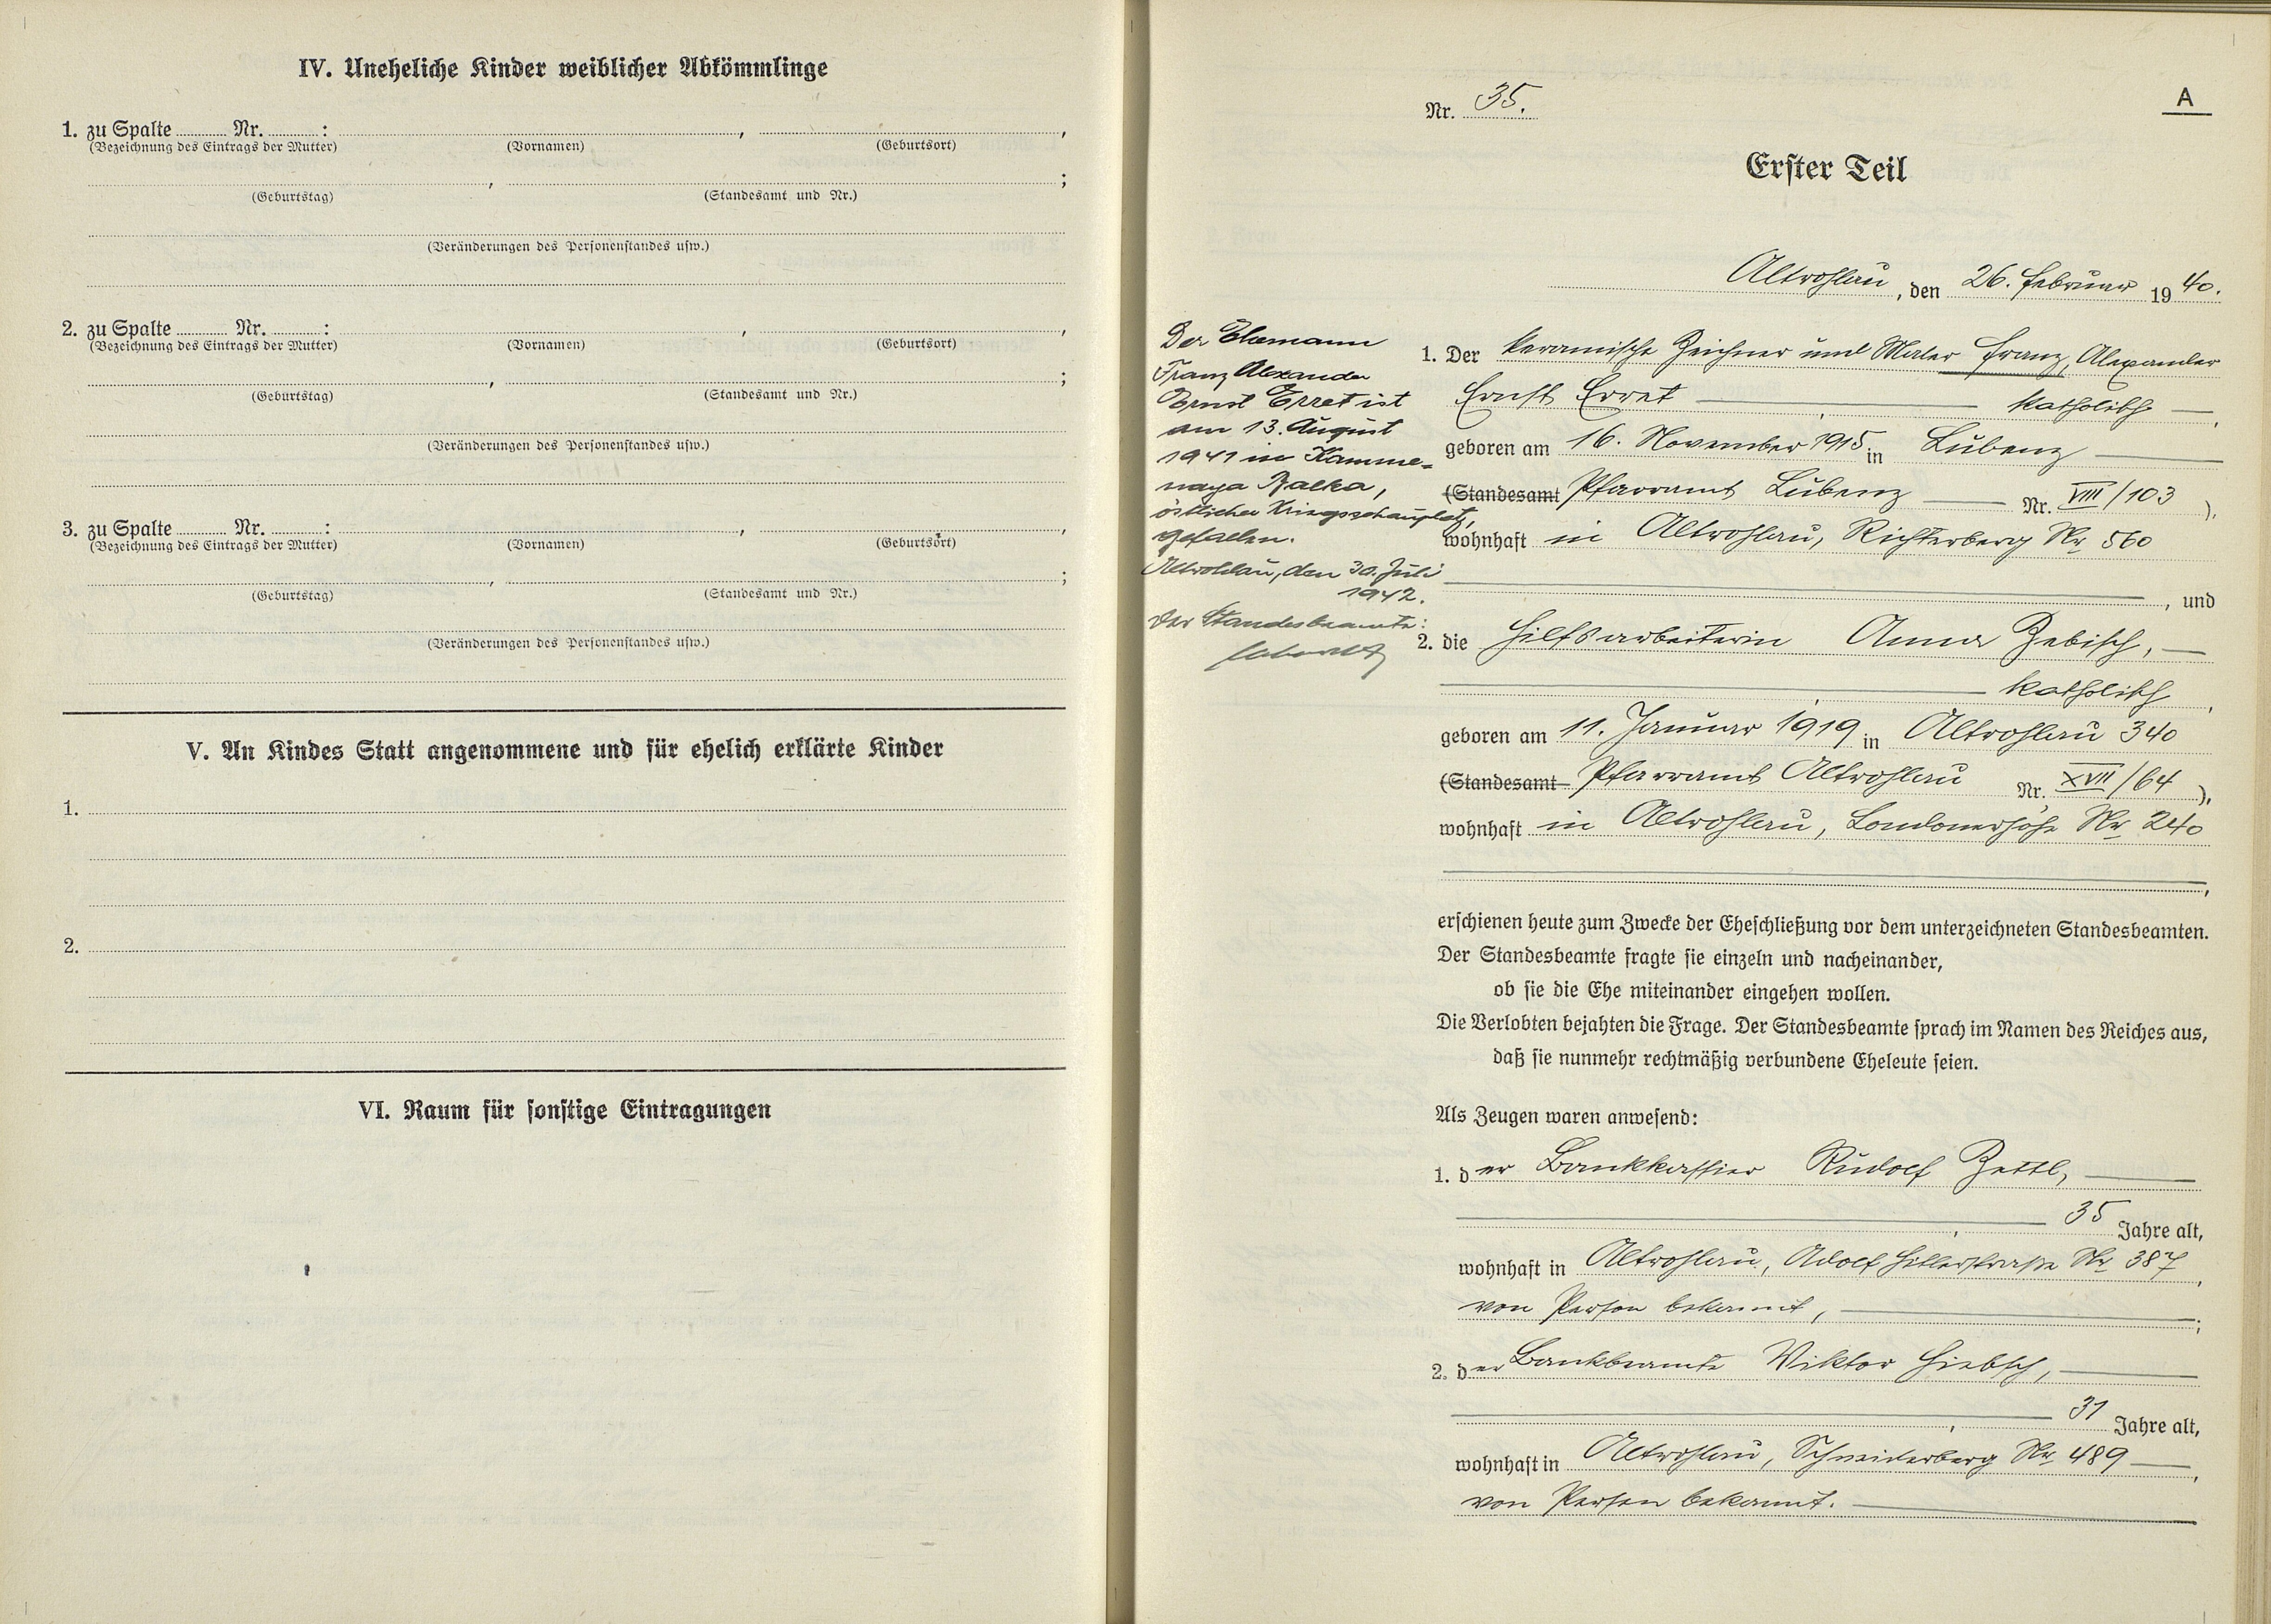 IV. Uneheliche Kinder weiblicher Abkömmlinge
1. zu Spalte Nr. : , ,
(Bezeichnung des Eintrags der Mutter) (Vornamen) (Geburtsort)
, ;
(Geburtstag) (Standesamt und Nr.)
(Veränderungen des Personenstandes usw.)
2. zu Spalte Nr. : , ,
(Bezeichnung des Eintrags der Mutter) (Vornamen) (Geburtsort)
, ;
(Geburtstag) (Standesamt und Nr.)
(Veränderungen des Personenstandes usw.)
3. zu Spalte Nr. : , ,
(Bezeichnung des Eintrags der Mutter) (Vornamen) (Geburtsort)
, ;
(Geburtstag) (Standesamt und Nr.)
(Veränderungen des Personenstandes usw.)
V. An Kindes Statt angenommene und für ehelich erklärte Kinder
1.
2.
VI. Raum für sonstige Eintragungen
Nr. 35.
A
Erster Teil
Altrohlau, den 26. Februar 1940.
Der Ehemann
Franz Alexander
Ernst Erret ist
am 13. August
1941 in Kamme-
naya Balka,
östlicher Kriegsschauplatz,
gefallen.
Altrohlau, den 30. Juli
1942.
Der Standesbeamte:
1. Der keramische Zeichner und Maler Franz, Alexander
Ernst Erret , katholisch ,
geboren am 16. November 1915 in Lubenz
(Standesamt Pfarramt Lubenz Nr. VIII/103 ),
wohnhaft in Altrohlau, Richterberg Nr 560
, und
2. die Hilfsarbeiterin Anna Zebisch,
, katholisch ,
geboren am 11. Januar 1919 in Altrohlau 340
(Standesamt Pfarramt Altrohlau Nr. XVII/64 ),
wohnhaft in Altrohlau, Londonerhöhe Nr 240
,
erschienen heute zum Zwecke der Eheschließung vor dem unterzeichneten Standesbeamten.
Der Standesbeamte fragte sie einzeln und nacheinander,
ob sie die Ehe miteinander eingehen wollen.
Die Verlobten bejahten die Frage. Der Standesbeamte sprach im Namen des Reiches aus,
daß sie nunmehr rechtmäßig verbundene Eheleute seien.
Als Zeugen waren anwesend:
1. der Bankkassier Rudolf Zettl,
, 35 Jahre alt,
wohnhaft in Altrohlau, Adolf Hitlerstraße Nr 387 ,
von Person bekannt, ;
2. der Bankbeamte Viktor Hiebsch,
, 31 Jahre alt,
wohnhaft in Altrohlau, Schneiderberg Nr 489 ,
von Person bekannt.